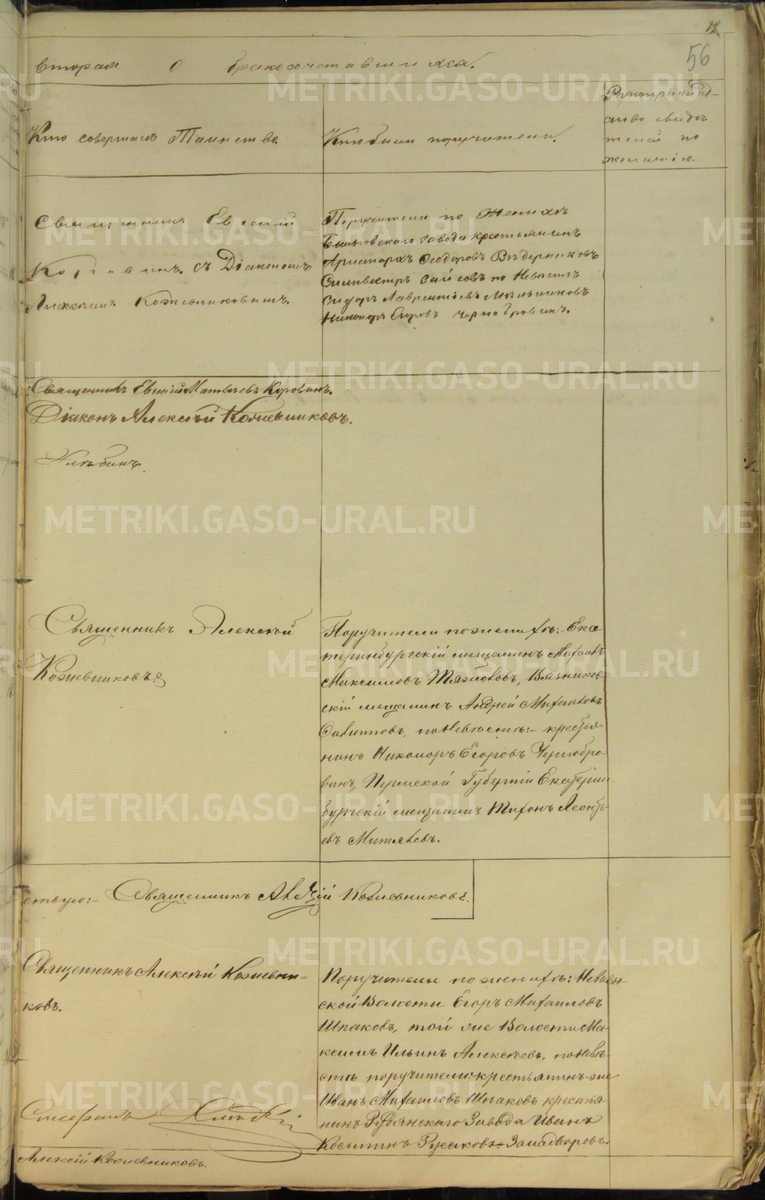 12
56
вторая о бракосочетавшихся.
Кто совершалъ Таинство
Кто были поручители.
Рукоприклад-
ство свидѣ
телей по
желанію.
Священникъ Евгеній
Коровинъ съ Діакономъ
Алексѣемъ Кожевниковымъ.
Поручители по Женихѣ
завода крестьянинъ
Аристархъ Ѳеодоровъ Ведерниковъ
Сильвестръ по Невѣстѣ
Сидоръ Лаврентьевъ Мельниковъ
Никаноръ Егоровъ Чернобровинъ.
Священникъ Евгеній Матвѣевъ Коровинъ.
Діаконъ Алексѣй Кожевниковъ.
Священникъ Алексѣй
Кожевниковъ
Поручители по женихѣ: Ека
теринбургскій мещанинъ Михаилъ
Максимовъ Вязников
скій мещанинъ Андрей Михаиловъ
по Невѣстѣ: крестья
нинъ Никаноръ Егоровъ Чернобро
винъ, Пермской Губерніи Екатерин
бургскій мещанинъ Тихонъ Леонть
евъ Митяевъ.
ствую: Священникъ Алексѣй Кожевниковъ.
Священникъ Алексѣй Кожевни-
ковъ.
Поручители по женихѣ: Невьян
ской Волости Егоръ Михаиловъ
Шпаковъ, той же Волости Ма
ксимъ Ильинъ Алексѣевъ, по невѣ
стѣ поручители: крестьянинъ же
Иванъ Михаиловъ Шпаковъ крестья
нинъ Рудянского Завода Иванъ
Козминъ Русаковъ
Алексѣй Кожевниковъ.
METRIKI.GASO-URAL.RU